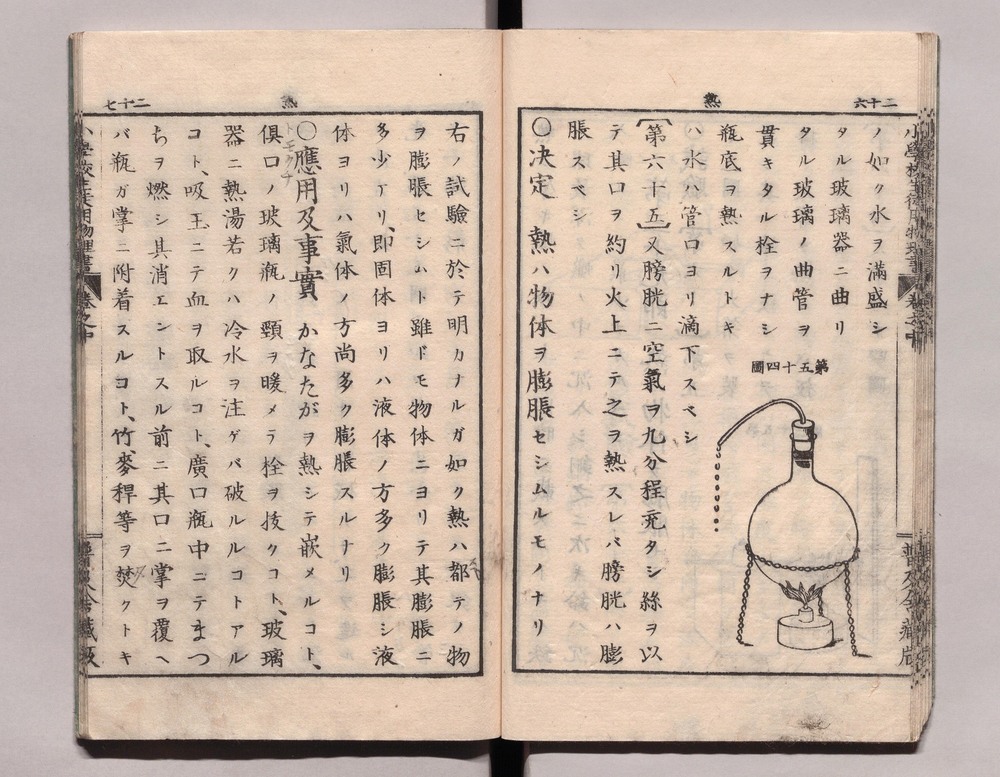 二十六
熱
ノ如ク水ヲ滿盛シ
タル玻璃器ニ曲リ
タル玻璃ノ曲管ヲ
貫キタル栓ヲナシ
瓶底ヲ熱スルトキ
ハ水ハ管口ヨリ滴下スベシ
第五十四圖
〔第六十五〕又膀胱ニ空氣ヲ九分程充タシ絲ヲ以
テ其口ヲ約リ火上ニテ之ヲ熱スレバ膀胱ハ膨
脹スベシ
〇決定 熱ハ物体ヲ膨脹セシムルモノナリ
二十七
熱
右ノ試驗ニ於テ明カナルガ如ク熱ハ都テノ物
ヲ膨脹セシムト雖ドモ物体ニヨリテ其膨脹ニ
多少アリ、即固体ヨリハ液体ノ方多ク膨脹シ液
体ヨリハ氣体ノ方尚多ク膨脹スルナリ
〇應用及事實 かなたがヲ熱シテ嵌メルコト、
倶口ノ玻璃瓶ノ頸ヲ暖メテ栓ヲ技クコト、玻璃
器ニ熱湯若クハ冷水ヲ注ゲバ破ルルコトアル
コト、吸玉ニテ血ヲ取ルコト、廣口瓶中ニテまつ
ちヲ燃シ其消エントスル前ニ其口ニ掌ヲ覆ヘ
バ瓶ガ掌ニ附着スルコト、竹、麥稈等ヲ焚クトキ